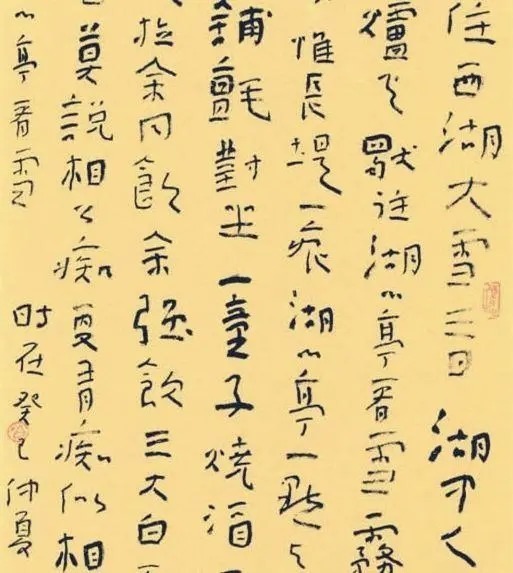 住西湖大雪三日湖中人
爐火獨往湖心亭看雪霧
惟長堤一痕湖心亭一點與
鋪氈對坐一童子燒酒
拉余同飲余強飲三大白
莫說相公痴更有痴似相
心亭看雪 時在癸巳仲夏